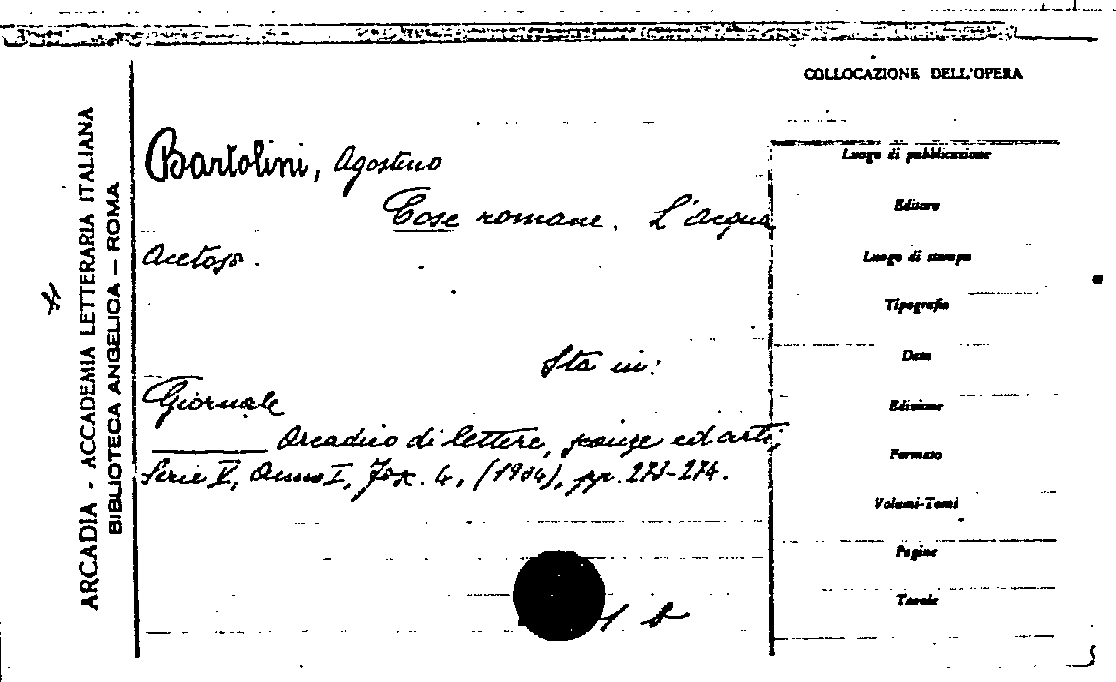 COLLOCAZIONE DELL'OPERA
ARCADIA - ACCADEMIA LETTERARIA ITALIANA
BIBLIOTECA ANGELICA — ROMA
Bartolini, Agostino
Cose romane. L'Acqua
Acetosa.
Sta in:
Giornale
Arcadico di lettere, scienze ed arti,
Serie V, Anno I, Fasc. 4, (1904), pp. 273-274.
Luogo di pubblicazione
Editore
Luogo di stampa
Tipografia
Data
Edizione
Formato
Volumi-Tomi
Pagine
Tavole